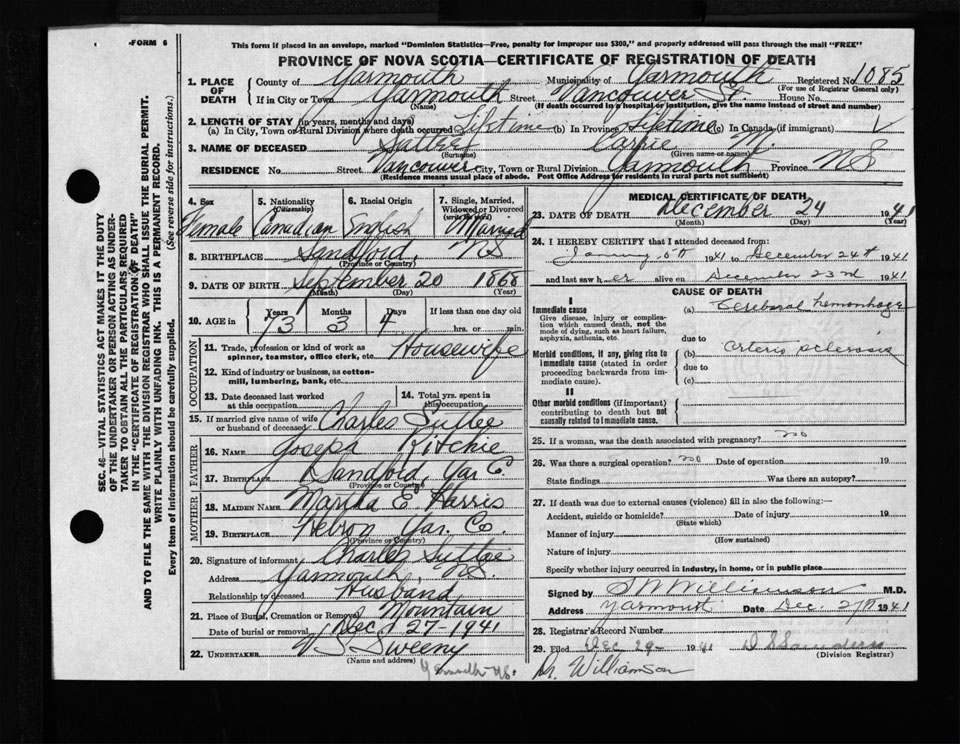 FORM 6
This form if placed in an envelope, marked "Dominion Statistics—Free, penalty for improper use $300," and properly addressed will pass through the mail "FREE"
PROVINCE OF NOVA SCOTIA—CERTIFICATE OF REGISTRATION OF DEATH
1. PLACE OF DEATH County of Yarmouth Municipality of Yarmouth Registered No. 1085
(For use of Registrar General only)
If in City or Town Yarmouth Street Vancouver St. House No.
(Name) (If death occurred in a hospital or institution, give the name instead of street and number)
2. LENGTH OF STAY (in years, months and days)
(a) In City, Town or Rural Division where death occurred Lifetime (b) In Province Lifetime (c) In Canada (if immigrant)
3. NAME OF DECEASED Carrie M.
(Surname) (Given name or names)
RESIDENCE No. Street Vancouver City, Town or Rural Division Yarmouth Province NS
(Residence means usual place of abode. Post Office Address for residents in rural parts not sufficient)
4. Sex 5. Nationality (Citizenship) 6. Racial Origin 7. Single, Married, Widowed or Divorced
Female Canadian English Married
8. BIRTHPLACE Sandford, NS
(Province or Country)
9. DATE OF BIRTH September 20 1868
(Month) (Day) (Year)
10. AGE in Years Months Days If less than one day old
73 3 4 hrs. or min.
OCCUPATION
11. Trade, profession or kind of work as spinner, teamster, office clerk, etc. Housewife
12. Kind of industry or business, as cotton-mill, lumbering, bank, etc.
13. Date deceased last worked at this occupation
14. Total yrs. spent in this occupation
15. If married give name of wife or husband of deceased Charles
FATHER
16. NAME Joseph Ritchie
17. BIRTHPLACE Sandford Yar Co.
(Province or Country)
MOTHER
18. MAIDEN NAME Martha E. Harris
19. BIRTHPLACE Hebron Yar. Co.
(Province or Country)
20. Signature of informant Charles
Address Yarmouth, NS.
Relationship to deceased Husband
21. Place of Burial, Cremation or Removal Mountain
Date of burial or removal Dec 27-1941
22. UNDERTAKER V S Sweeny
(Name and address)
Yarmouth NS.
MEDICAL CERTIFICATE OF DEATH
23. DATE OF DEATH December 24 1941
(Month) (Day)
24. I HEREBY CERTIFY that I attended deceased from:
1941 to December 24th 1941
and last saw her alive on December 23rd 1941
CAUSE OF DEATH
I
Immediate cause
Give disease, injury or complication which caused death, not the mode of dying, such as heart failure, asphyxia, asthenia, etc.
(a) Cerebral hemorrhage
due to
Morbid conditions, if any, giving rise to immediate cause (stated in order proceeding backwards from immediate cause).
(b) arterio sclerosis
due to
(c)
II
Other morbid conditions (if important) contributing to death but not causally related to immediate cause.
25. If a woman, was the death associated with pregnancy? no
26. Was there a surgical operation? no Date of operation 19
State findings Was there an autopsy?
27. If death was due to external causes (violence) fill in also the following:—
Accident, suicide or homicide? Date of injury 19
(State which)
Manner of injury
(How sustained)
Nature of injury
Specify whether injury occurred in industry, in home, or in public place
Signed by Williamson M.D.
Address Yarmouth Date Dec. 1941
28. Registrar's Record Number
29. Filed Dec 29 1941 Saunders
(Division Registrar)
Dr. Williamson
SEC. 46—VITAL STATISTICS ACT MAKES IT THE DUTY
OF THE UNDERTAKER OR PERSON ACTING AS UNDER-
TAKER TO OBTAIN ALL THE PARTICULARS REQUIRED
IN THE "CERTIFICATE OF REGISTRATION OF DEATH"
AND TO FILE THE SAME WITH THE DIVISION REGISTRAR WHO SHALL ISSUE THE BURIAL PERMIT.
WRITE PLAINLY WITH UNFADING INK. THIS IS A PERMANENT RECORD.
Every item of information should be carefully supplied. (See reverse side for instructions.)